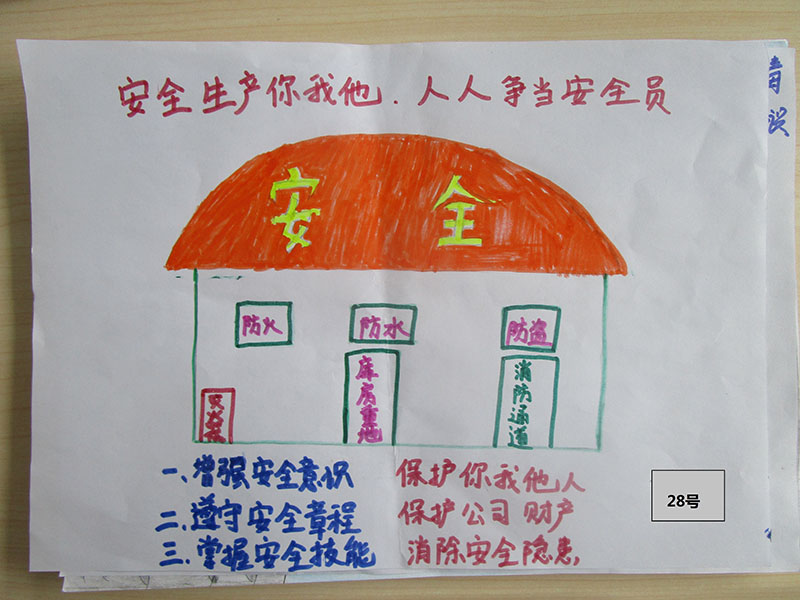 安全生产你我他.人人争当安全员
安全
防火 防水 防盗
库房重地
消防通道
一、增强安全意识 保护你我他人
二、遵守安全章程 保护公司财产
三、掌握安全技能 消除安全隐患,
28号